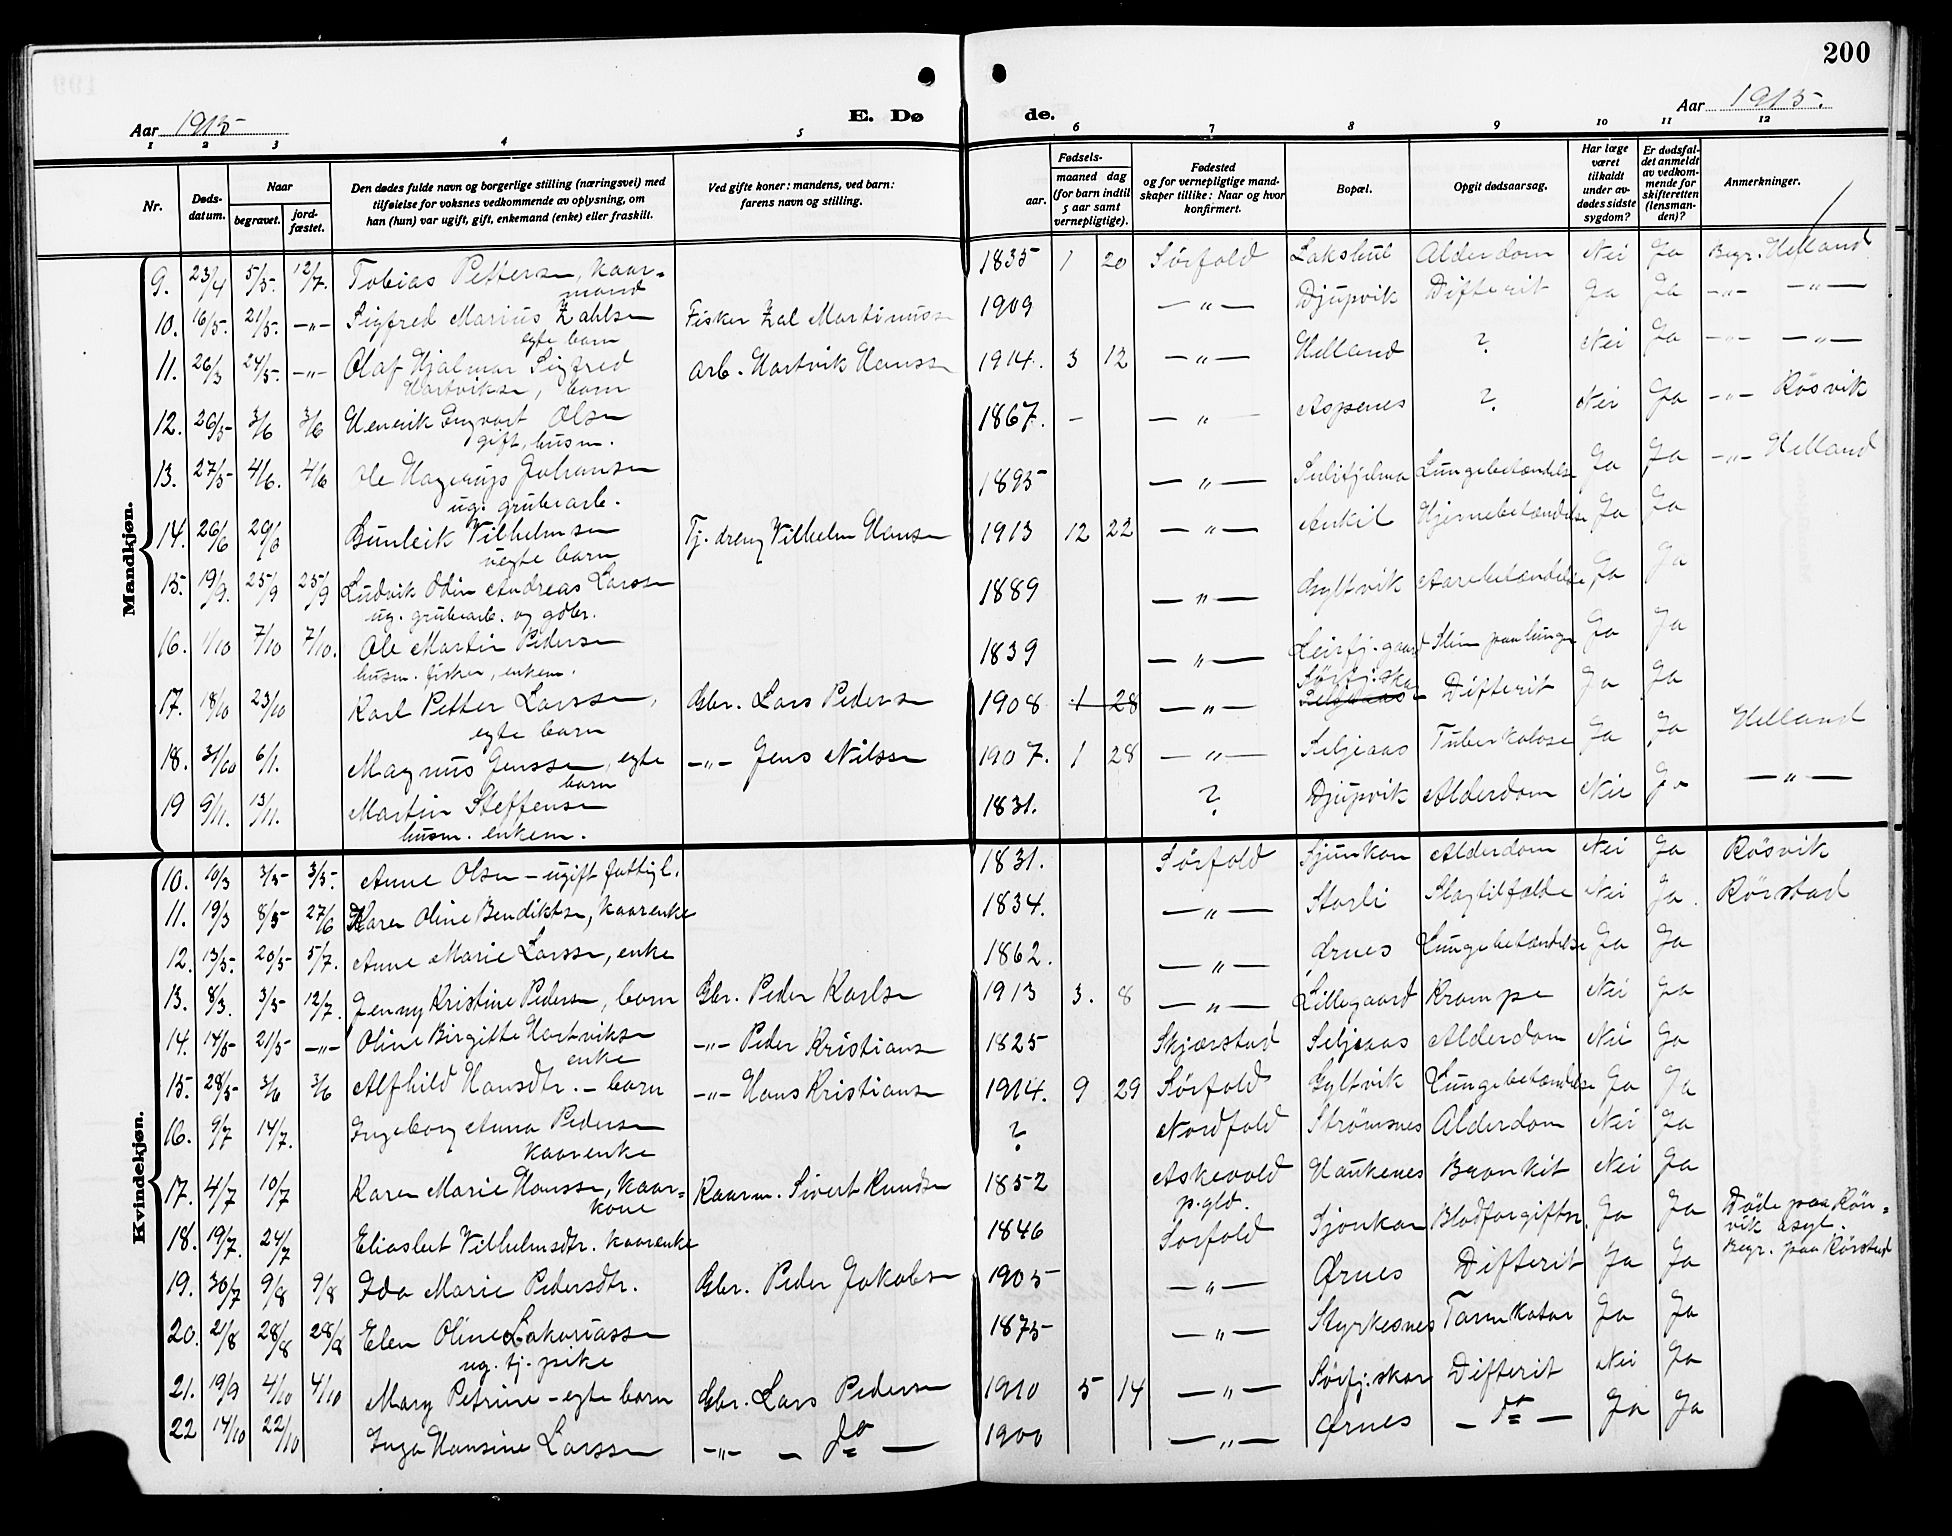 200
Aar 1915.
E. Døde.
Aar 1915.
1 2 3 4 5 6 7 8 9 10 11 12
Nr.
Døds-
datum.
Naar
begravet.
jord-
fæstet.
Den dødes fulde navn og borgerlige stilling (næringsvei) med
tilføielse for voksnes vedkommende av oplysning, om
han (hun) var ugift, gift, enkemand (enke) eller fraskilt.
Ved gifte koner: mandens, ved barn:
farens navn og stilling.
Fødsels-
aar.
maaned dag
(for barn indtil
5 aar samt
vernepligtige).
Fødested
og for vernepligtige mand-
skaper tillike: Naar og hvor
konfirmert.
Bopæl.
Opgit dødsaarsag.
Har læge
været
tilkaldt
under av-
dødes sidste
sygdom?
Er dødsfal-
det anmeldt
av vedkom-
mende for
skifteretten
(lensman-
den)?
Anmerkninger.
Mandkjøn.
9. 23/4 5/5. 12/7. Tobias Pettersen, kaar- 1835 1 20 Sørfold Lakshul Alderdom Nei Ja Begr. Helland
mand
10. 16/5. 21/5. -"- Sigfred Marius Zahlsen Fisker Zal Martinussen 1909 -"- Djupvik Difterit Ja Ja -"- -"-
egte barn
11. 26/3 24/5. -"- Olaf Hjalmar Sigfred arb. Hartvik Hansen 1914. 3 12 -"- Helland ? Nei Ja -"- -"-
Hartviksen, barn
12. 26/5 3/6 3/6 Henrik Engvart Olsen 1867. - -"- Aspenes ? Nei Ja -"- Røsvik
gift, husm.
13. 27/5 4/6. 4/6 Ole Hagerup Johansen 1895 -"- Sulitjelma Lungebetændelse Ja Ja -"- Helland
ug. grubearb.
14. 26/6 29/6 Gunleik Vilhelmsen Tj. dreng Vilhelm Hansen 1913 12 22 -"- Hjernebetændelse Ja Ja
uegte barn
15. 19/9. 25/9 25/9 Ludvik Odin Andreas Larsen 1889 -"- Gyltvik Aarebetændelse Ja Ja
ug. grubearb. og gdbr.
16. 1/10 7/10 7/10. Ole Martin Pedersen 1839 -"- Leirfj. gaard Slim paa lunge Ja Ja
husm. fisker, enkem.
17. 18/10 23/10 Karl Petter Larsen, Gbr. Lars Pedersen 1908 1 28 -"- Sørfj. skar Difterit Ja Ja
egte barn
18. 31/10 6/1. Magnus Jensen, egte -"- Jens Nilsen 1907. 1 28 -"- Seljeaas Tuberkolose Ja Ja Helland
barn
19 9/11. 13/11. Martin Steffensen 1831. ? Djupvik Alderdom Nei Ja -"-
husm. enkem.
Kvindekjøn.
10. 10/3 3/5 3/5. Anne Olsen - ugift fattigl. 1831. Sørfold Sjunkan Alderdom Nei Ja Røsvik
11. 19/3 8/5 27/6 Karen Oline Bendiktsen, kaarenke 1834. -"- Storli Slagtilfælde Nei Ja. Rørstad
12. 13/5. 20/5 5/7. Anne Marie Larsen, enke 1862. -"- Ørnes Lungebetændelse Ja Ja
13. 8/3. 3/5 12/7. Jenny Kristine Pedersen, barn Gbr. Peder Karlsen 1913 3. 8 -"- Lillegaard Krampe Nei Ja
14. 14/5 21/5 -"- Oline Birgitte Hartviksen -"- Peder Kristiansen 1825 Skjærstad Seljeaas Alderdom Nei Ja
enke
15. 28/5 3/6 3/6 Alfhild Hansdtr. - barn -"- Hans Kristiansen 1914. 9 29 Sørfold Gyltvik Lungebetændelse Ja Ja
16. 9/7 14/7. Ingeborg Anna Pedersen ? Nordfold Strømsnes Alderdom Nei Ja
kaarenke
17. 4/7 10/7 Karen Marie Hansen, kaar- Kaarm. Sivert Knudsen 1852 Askevold Haukenes Bronkit Nei Ja
kone p.gld.
18. 19/7. 24/7 Eliasbet Vilhelmsdtr. kaarenke 1846 Sørfold Sjonkan Blodforgiftn. Ja Ja Døde paa Røn-
vik asyl.
Begr. paa Rørstad
19. 30/7 9/8 9/8 Ida Marie Pedersdtr. Gbr. Peder Jakobsen 1905 -"- Ørnes Difterit Ja Ja
20. 21/8 28/8 28/8 Elen Oline Zakariassen 1875 -"- Styrkesnes Tarmkatar Ja Ja
ug. tj. pike
21. 19/9 4/10 4/10 Mary Petrine - egte barn Gbr. Lars Pedersen 1910 5 14 -"- Sørfj. skar Difterit Nei Ja
22 14/10 22/10 Inga Hansine Larssen -"- - do - 1900 -"- Ørnes - do - Ja Ja